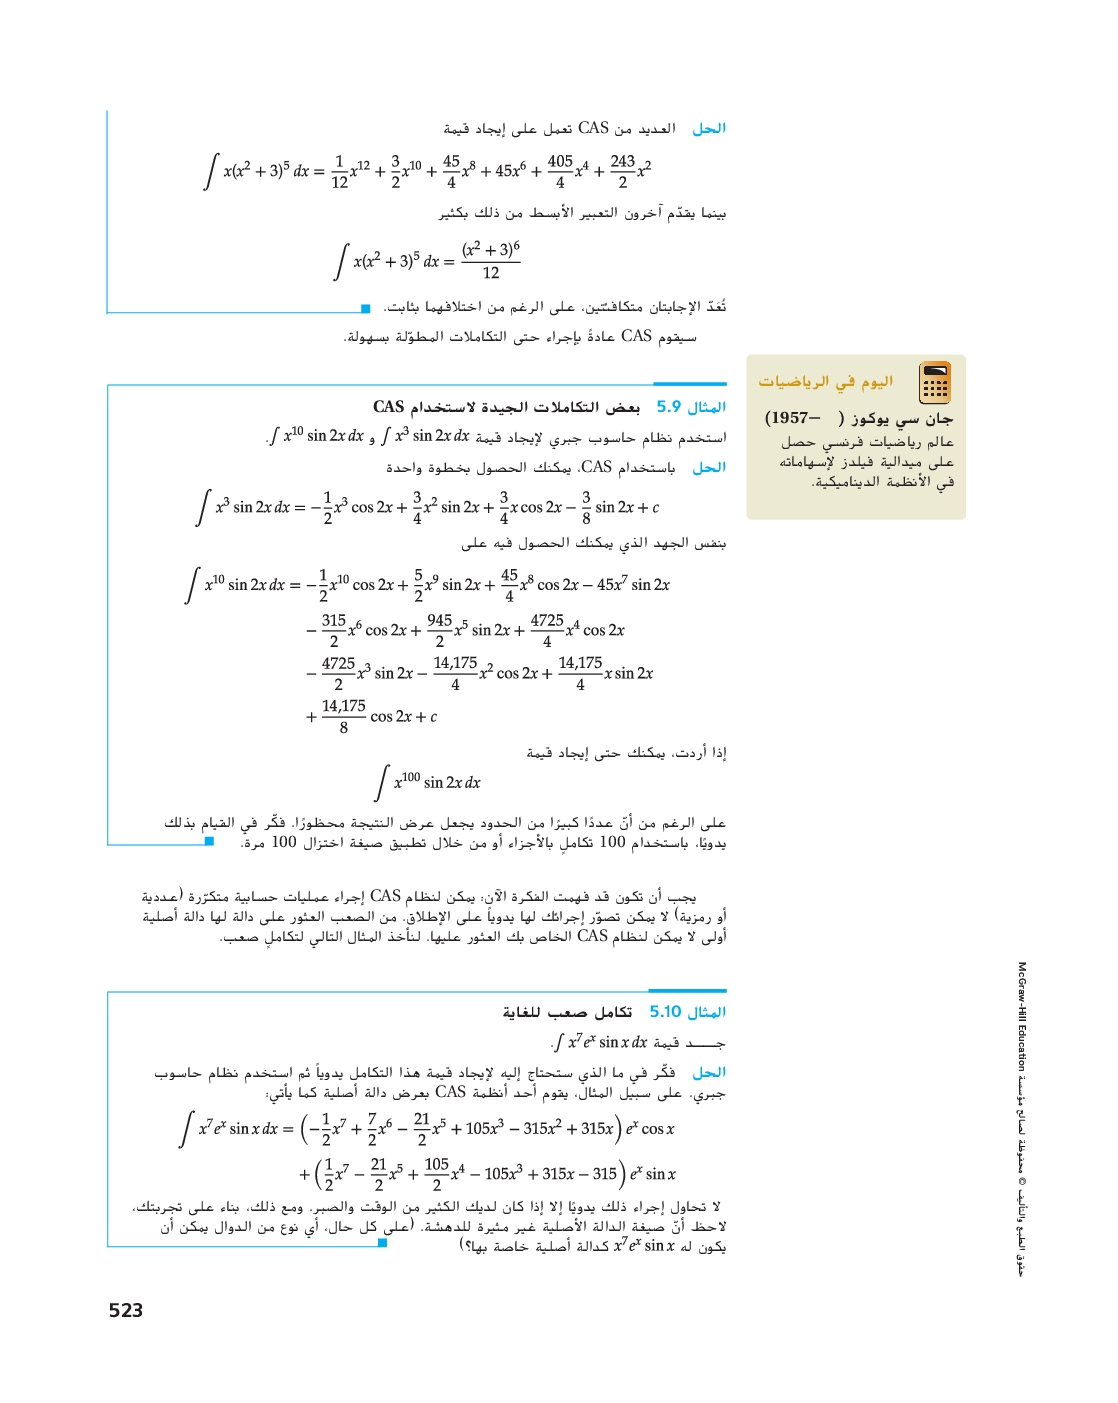 الحل العديد من CAS تعمل على إيجاد قيمة
∫ x(x² + 3)⁵ dx = 1/12 x¹² + 3/2 x¹⁰ + 45/4 x⁸ + 45x⁶ + 405/4 x⁴ + 243/2 x²
بينما يقدّم آخرون التعبير الأبسط من ذلك بكثير
∫ x(x² + 3)⁵ dx = (x² + 3)⁶/12
تُعَدّ الإجابتان متكافئتين، على الرغم من اختلافهما بثابت.
سيقوم CAS عادةً بإجراء حتى التكاملات المطوّلة بسهولة.
اليوم في الرياضيات
جان سي يوكوز ( –1957)
عالم رياضيات فرنسي حصل
على ميدالية فيلدز لإسهاماته
في الأنظمة الديناميكية.
المثال 5.9 بعض التكاملات الجيدة لاستخدام CAS
استخدم نظام حاسوب جبري لإيجاد قيمة ∫ x³ sin 2x dx و ∫ x¹⁰ sin 2x dx.
الحل باستخدام CAS، يمكنك الحصول بخطوة واحدة
∫ x³ sin 2x dx = −1/2 x³ cos 2x + 3/4 x² sin 2x + 3/4 x cos 2x − 3/8 sin 2x + c
بنفس الجهد الذي يمكنك الحصول فيه على
∫ x¹⁰ sin 2x dx = −1/2 x¹⁰ cos 2x + 5/2 x⁹ sin 2x + 45/4 x⁸ cos 2x − 45x⁷ sin 2x
− 315/2 x⁶ cos 2x + 945/2 x⁵ sin 2x + 4725/4 x⁴ cos 2x
− 4725/2 x³ sin 2x − 14,175/4 x² cos 2x + 14,175/4 x sin 2x
+ 14,175/8 cos 2x + c
إذا أردت، يمكنك حتى إيجاد قيمة
∫ x¹⁰⁰ sin 2x dx
على الرغم من أنّ عددًا كبيرًا من الحدود يجعل عرض النتيجة محظورًا. فكّر في القيام بذلك
يدويًا، باستخدام 100 تكاملٍ بالأجزاء أو من خلال تطبيق صيغة اختزال 100 مرة.
يجب أن تكون قد فهمت الفكرة الآن: يمكن لنظام CAS إجراء عمليات حسابية متكرّرة (عددية
أو رمزية) لا يمكن تصوّر إجرائك لها يدوياً على الإطلاق. من الصعب العثور على دالة لها دالة أصلية
أولى لا يمكن لنظام CAS الخاص بك العثور عليها. لنأخذ المثال التالي لتكاملٍ صعب.
المثال 5.10 تكامل صعب للغاية
جـــد قيمة ∫ x⁷eˣ sin x dx.
الحل فكّر في ما الذي ستحتاج إليه لإيجاد قيمة هذا التكامل يدوياً ثم استخدم نظام حاسوب
جبري. على سبيل المثال، يقوم أحد أنظمة CAS بعرض دالة أصلية كما يأتي:
∫ x⁷eˣ sin x dx = (−1/2 x⁷ + 7/2 x⁶ − 21/2 x⁵ + 105x³ − 315x² + 315x) eˣ cos x
+ (1/2 x⁷ − 21/2 x⁵ + 105/2 x⁴ − 105x³ + 315x − 315) eˣ sin x
لا تحاول إجراء ذلك يدويًا إلا إذا كان لديك الكثير من الوقت والصبر. ومع ذلك، بناء على تجربتك،
لاحظ أنّ صيغة الدالة الأصلية غير مثيرة للدهشة. (على كل حال، أي نوع من الدوال يمكن أن
يكون له x⁷eˣ sin x كدالة أصلية خاصة بها؟)
حقوق الطبع والتأليف © محفوظة لصالح مؤسسة McGraw-Hill Education
523